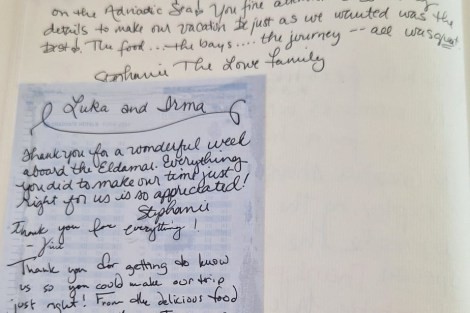 on the Adriatic Sea! You fine
details to make our vacation be just as we wanted was the
best. The food... the bays.... the journey -- all was great
Stephanie The Lowe family
Luka and Irma
Thank you for a wonderful week
aboard the Eldamar. Everything
you did to make our time just
right for us is so appreciated!
Stephanie
Thank you for everything!
Thank you for getting to know
us so you could make our trip
just right! From the delicious food